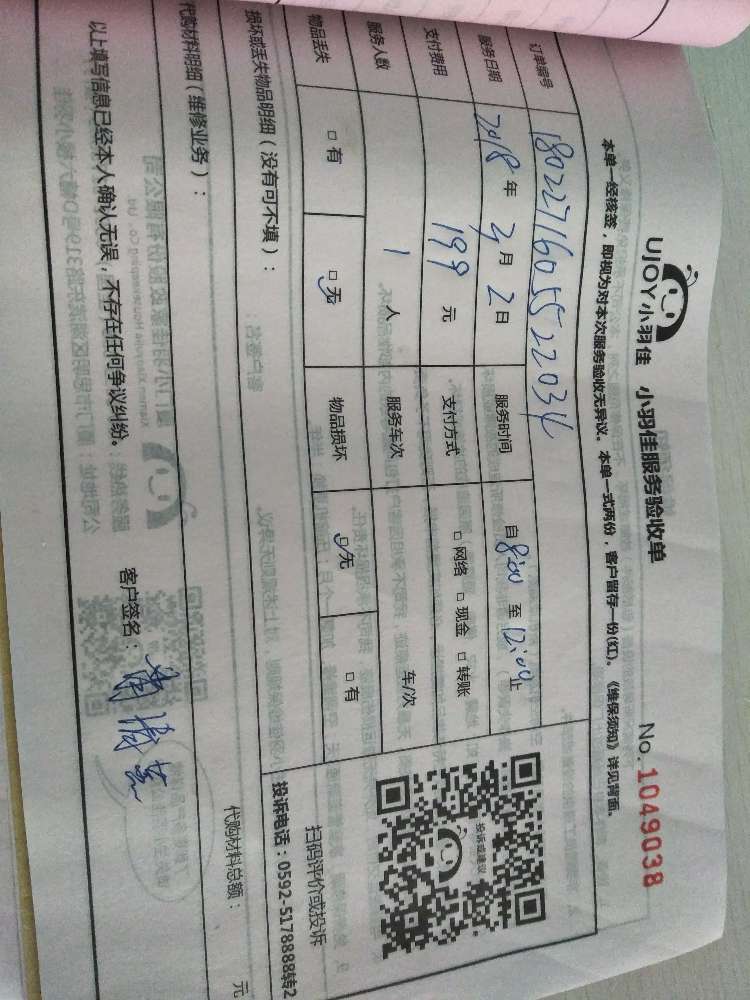 UJOY小羽佳 小羽佳服务验收单 No. 1049038
本单一经核签，即视为对本次服务验收无异议。本单一式两份，客户留存一份(红)。《维保须知》详见背面。
订单编号 1802271605522034
服务日期 2018 年 3 月 2 日 服务时间 自 8:00 至 12:00 止
支付费用 199 元 支付方式 □ 网络 □ 现金 □ 转账
服务人数 1 人 服务车次 车/次
物品丢失 □ 有 □ 无 物品损坏 □ 无 □ 有
投诉或建议
扫码评价或投诉
损坏或丢失物品明细（没有可不填）： 投诉电话：0592-5178888转2
代购材料明细（维修业务）： 代购材料总额： 元
以上填写信息已经本人确认无误，不存在任何争议纠纷。 客户签名：